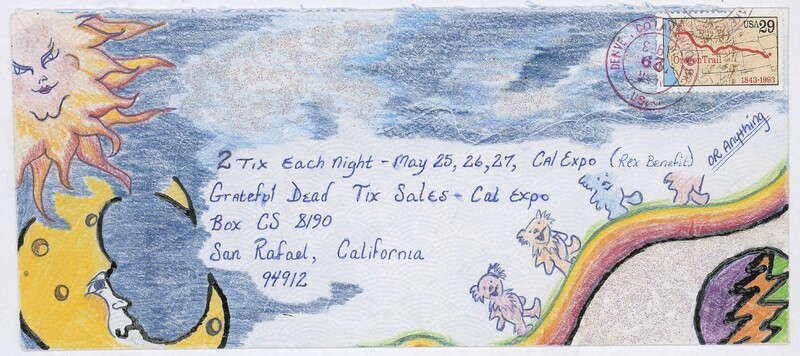 USA 29
Oregon Trail
1843-1993
2 Tix Each Night - May 25, 26, 27, Cal Expo (Rex Benefit)
OR Anything
Grateful Dead Tix Sales - Cal Expo
Box CS 8190
San Rafael, California
94912